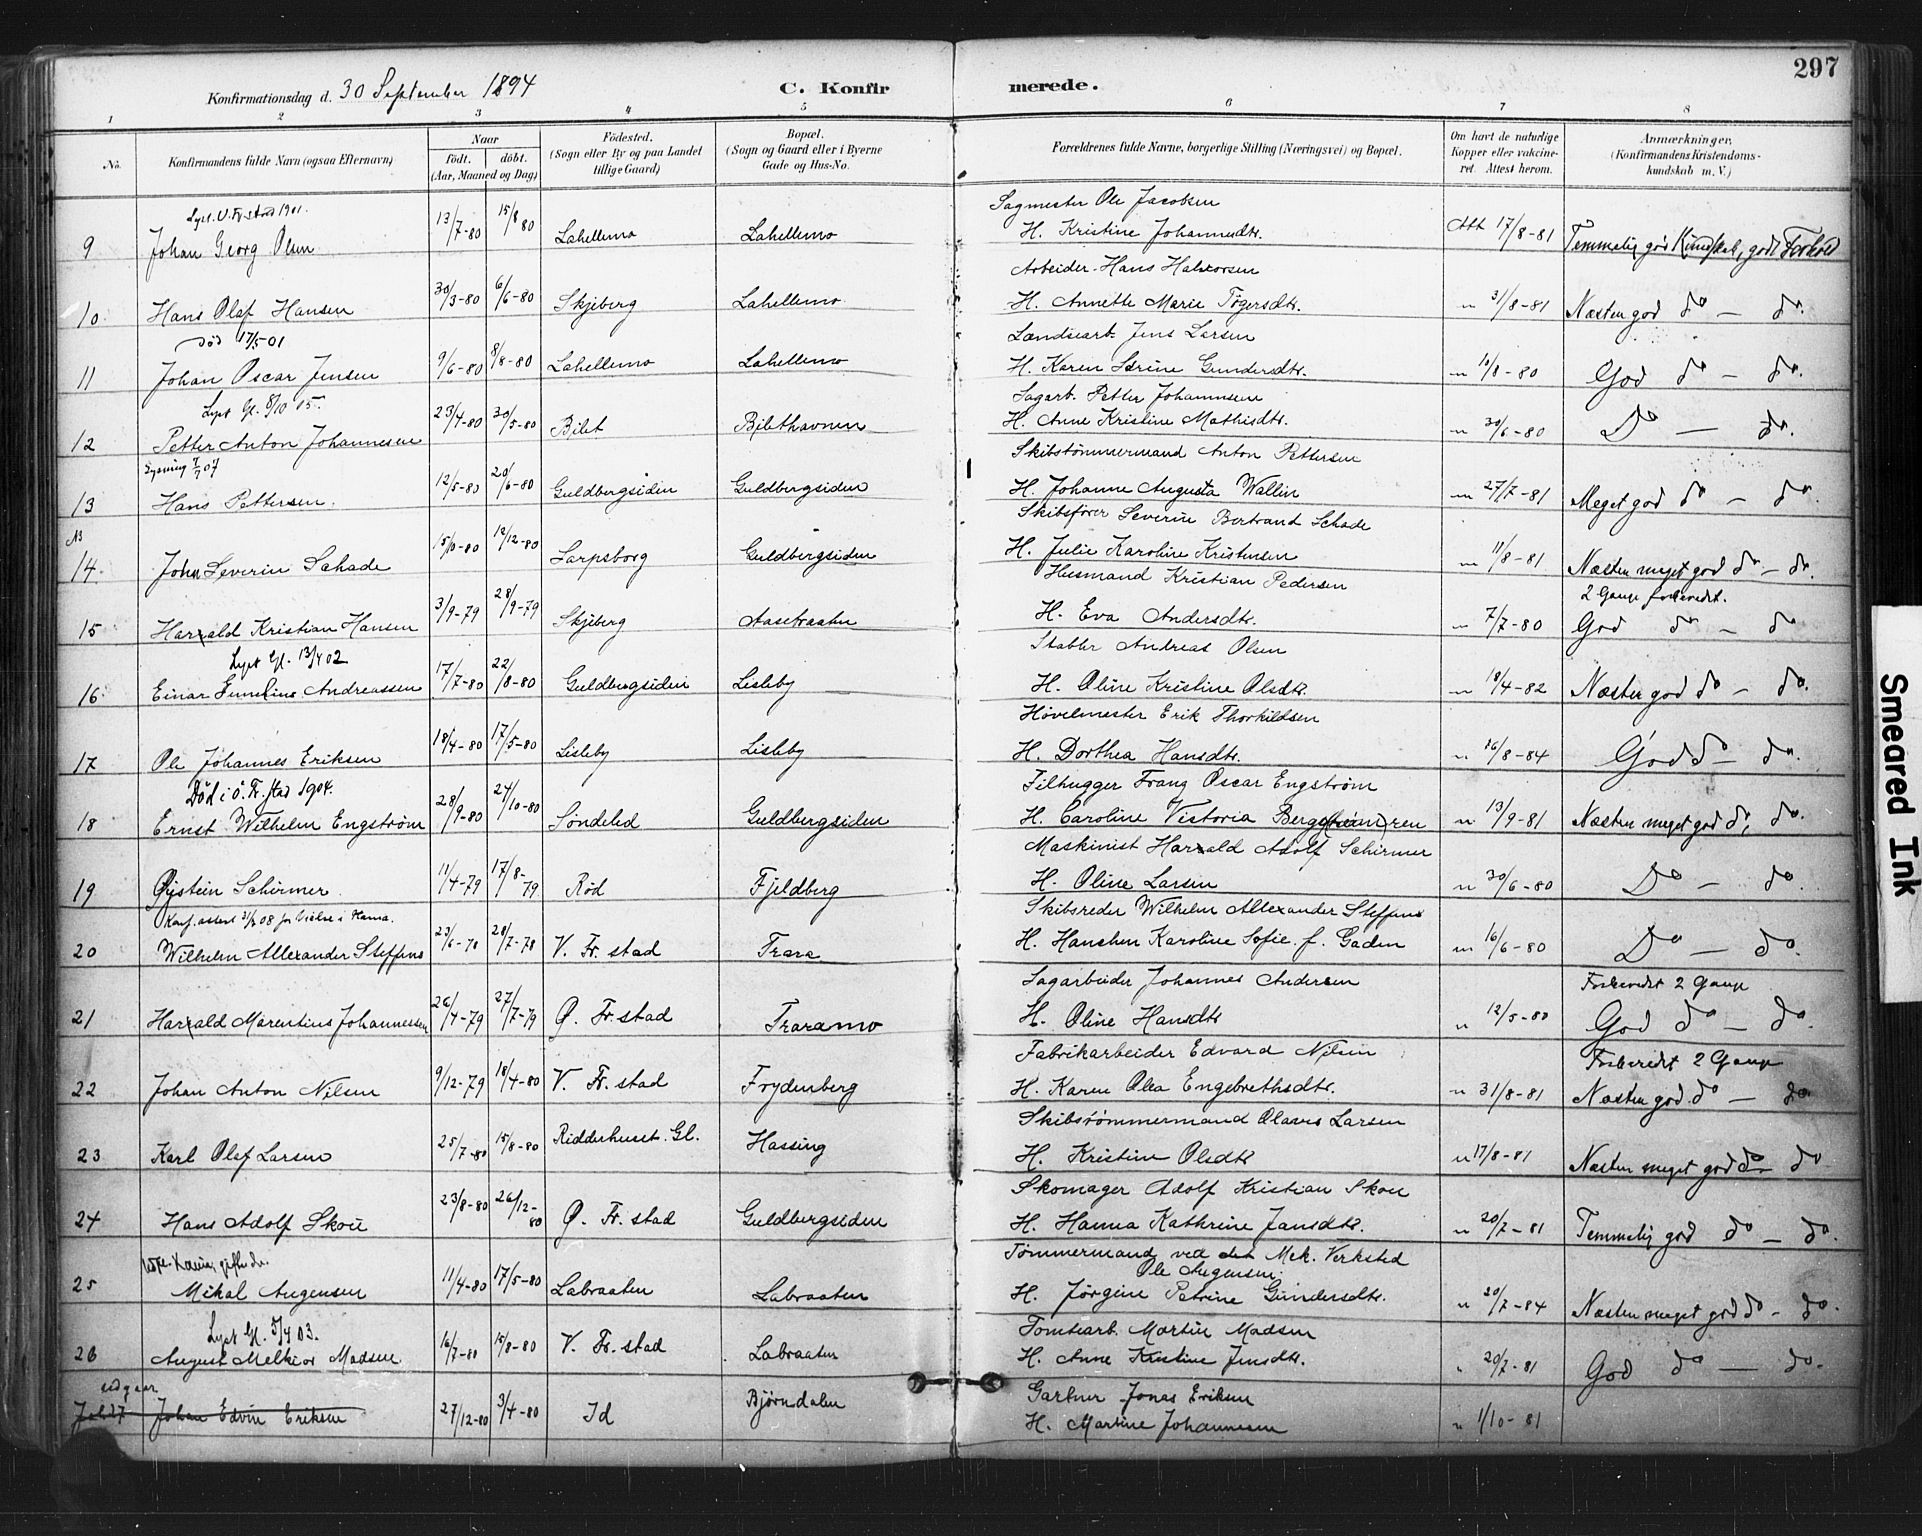 297
Konfirmationsdag d. 30 September 1894 C. Konfirmerede.
1 2 3 4 5 6 7 8
No. Konfirmandens fulde Navn (ogsaa Efternavn) Naar født. døbt. (Aar, Maaned og Dag) Fødested. (Sogn eller By og paa Landet tillige Gaard) Bopæl. (Sogn og Gaard eller i Byerne Gade og Hus-No. Forældrenes fulde Navne, borgerlige Stilling (Næringsvei) og Bopæl. Om havt de naturlige Kopper eller vakcineret. Attest herom. Anmærkninger. (Konfirmandens Kristendomskundskab m. V.)
Lyst. V. Fr.stad 1901. Sagmester Ole Jacobsen
9 Johan Georg Olsen 13/7-80 15/8 80 Lahellemo Lahellemo H. Kristine Johannesdtr. Att 17/8-81 Temmelig god Kundskab, godt Forhold
Arbeider Hans Halvorsen
10 Hans Olaf Hansen 30/3-80 6/6-80 Skjeberg Lahellemo H. Annette Marie Tøgersdtr. " 31/8-81 Næsten god do - do.
død 17/5 01 Landsearb. Jens Larsen
11 Johan Oscar Jensen 9/6-80 8/8-80 Lahellemo Lahellemo H. Karen Serine Gundersdtr. " 10/8-80 God do - do.
Lyst Gl. 8/10 05. Sagarb. Petter Johannesen
12 Petter Anton Johannesen 23/4-80 30/5-80 Bilet Bilethavnen H. Anne Kristine Mathisdtr. " 30/6-80 Do - do.
Lysning 7/7 07 Skibstømmermand Anton Pettersen
13 Hans Pettersen. 12/5-80 20/6-80 Guldbergsiden Guldbergsiden H. Johanne Augusta Wallin " 27/7-81 Meget god do - do.
NB Skibsfører Severin Bertrand Schade
14. John Severin Schade 15/10-80 12/12-80 Sarpsborg Guldbergsiden H. Julie Karoline Kristensen " 11/8-81 Næsten meget god do - do.
Husmand Kristian Pedersen 2 Gange forberedt.
15 Harald Kristian Hansen 3/9-79 28/9-79 Skjeberg Aasebraaten H. Eva Andersdtr. " 7/7-80 God do - do
Lyst Gl. 13/4 02 Stabler Andreas Olsen
16 Einar Emelius Andreassen 17/7-80 22/8-80 Guldbergsiden Lisleby H. Oline Kristine Olsdtr. " 18/4-82 Næsten god do - do.
Høvelmester Erik Thorkildsen
17 Ole Johannes Eriksen 18/4-80 17/5-80 Lisleby Lisleby H. Dorthea Hansdtr. " 16/8-84 God do - do.
Død i Ö. Fr.stad 1904. Filhugger Frang Oscar Engstrøm
18 Ernst Wilhelm Engstrøm 28/9-80 24/10-80 Søndeled Guldbergsiden H. Caroline Victoria Berg(strøm)ren " 13/9-81 Næsten meget god do, do.
Maskinist Harald Adolf Schirmer
19 Øystein Schirmer. 11/4-79 17/8-79 Rød Fjeldberg H. Oline Larsen " 30/6-80 Do - do.
Konf. attest 31/3 08 for Vielse i Skibsreder Wilhelm Allexander Steffens
20 Wilhelm Allexander Steffens 23/6-78 28/7-78 V. Fr.stad Trara H. Hanchen Karoline Sofie f. Gaden " 16/6-80 Do - do.
Sagarbeider Johannes Andersen Forberedt 2 Gange
21 Harald Marentius Johannessen 26/4-79 27/7-79 Ø. Fr.stad Traramo H. Oline Hansdtr " 12/5-80 God do - do.
Fabrikarbeider Edvard Nilsen Forberedt 2 Gange
22 Johan Anton Nilsen 9/12-79 18/4-80 V. Fr.stad Frydenberg H. Karen Olea Engebrethsdtr. " 31/8-81 Næsten god. do - do.
Skibstømmermand Olaves Larsen
23 Karl Olaf Larsen 25/7-80 15/8-80 Ridderhuset. Gl. Hassing H. Kristine Olsdtr " 17/8-81 Næsten meget god do - do
Skomager Adolf Kristian Skou
24 Hans Adolf Skou 23/8-80 26/12-80 Ø. Fr.stad Guldbergsiden H. Hanna Kathrine Jansdtr. " 20/7-81 Temmelig god do - do.
Tømmermand ved det Mek. Verksted
Ole Augensen.
25 Mikal Augensen 11/4-80 17/5-80 Labraaten Labraaten H. Jørgine Petrine Gundersdtr. " 20/7-84 Næsten meget god do - do.
Lyst Gl. 5/4 03. Tomtearb. Martin Madsen
26 August Melkior Madsen 16/7-80 15/8-80 V. Fr.stad Labraaten H. Anne Kristine Jensdtr. " 20/7-81 God do - do.
udgaar Gartner Jonas Eriksen
Johan Edvin Eriksen 27/12-80 3/4-80 Id Bjørndalen H. Martine Johannesen " 1/10-81
Smeared Ink